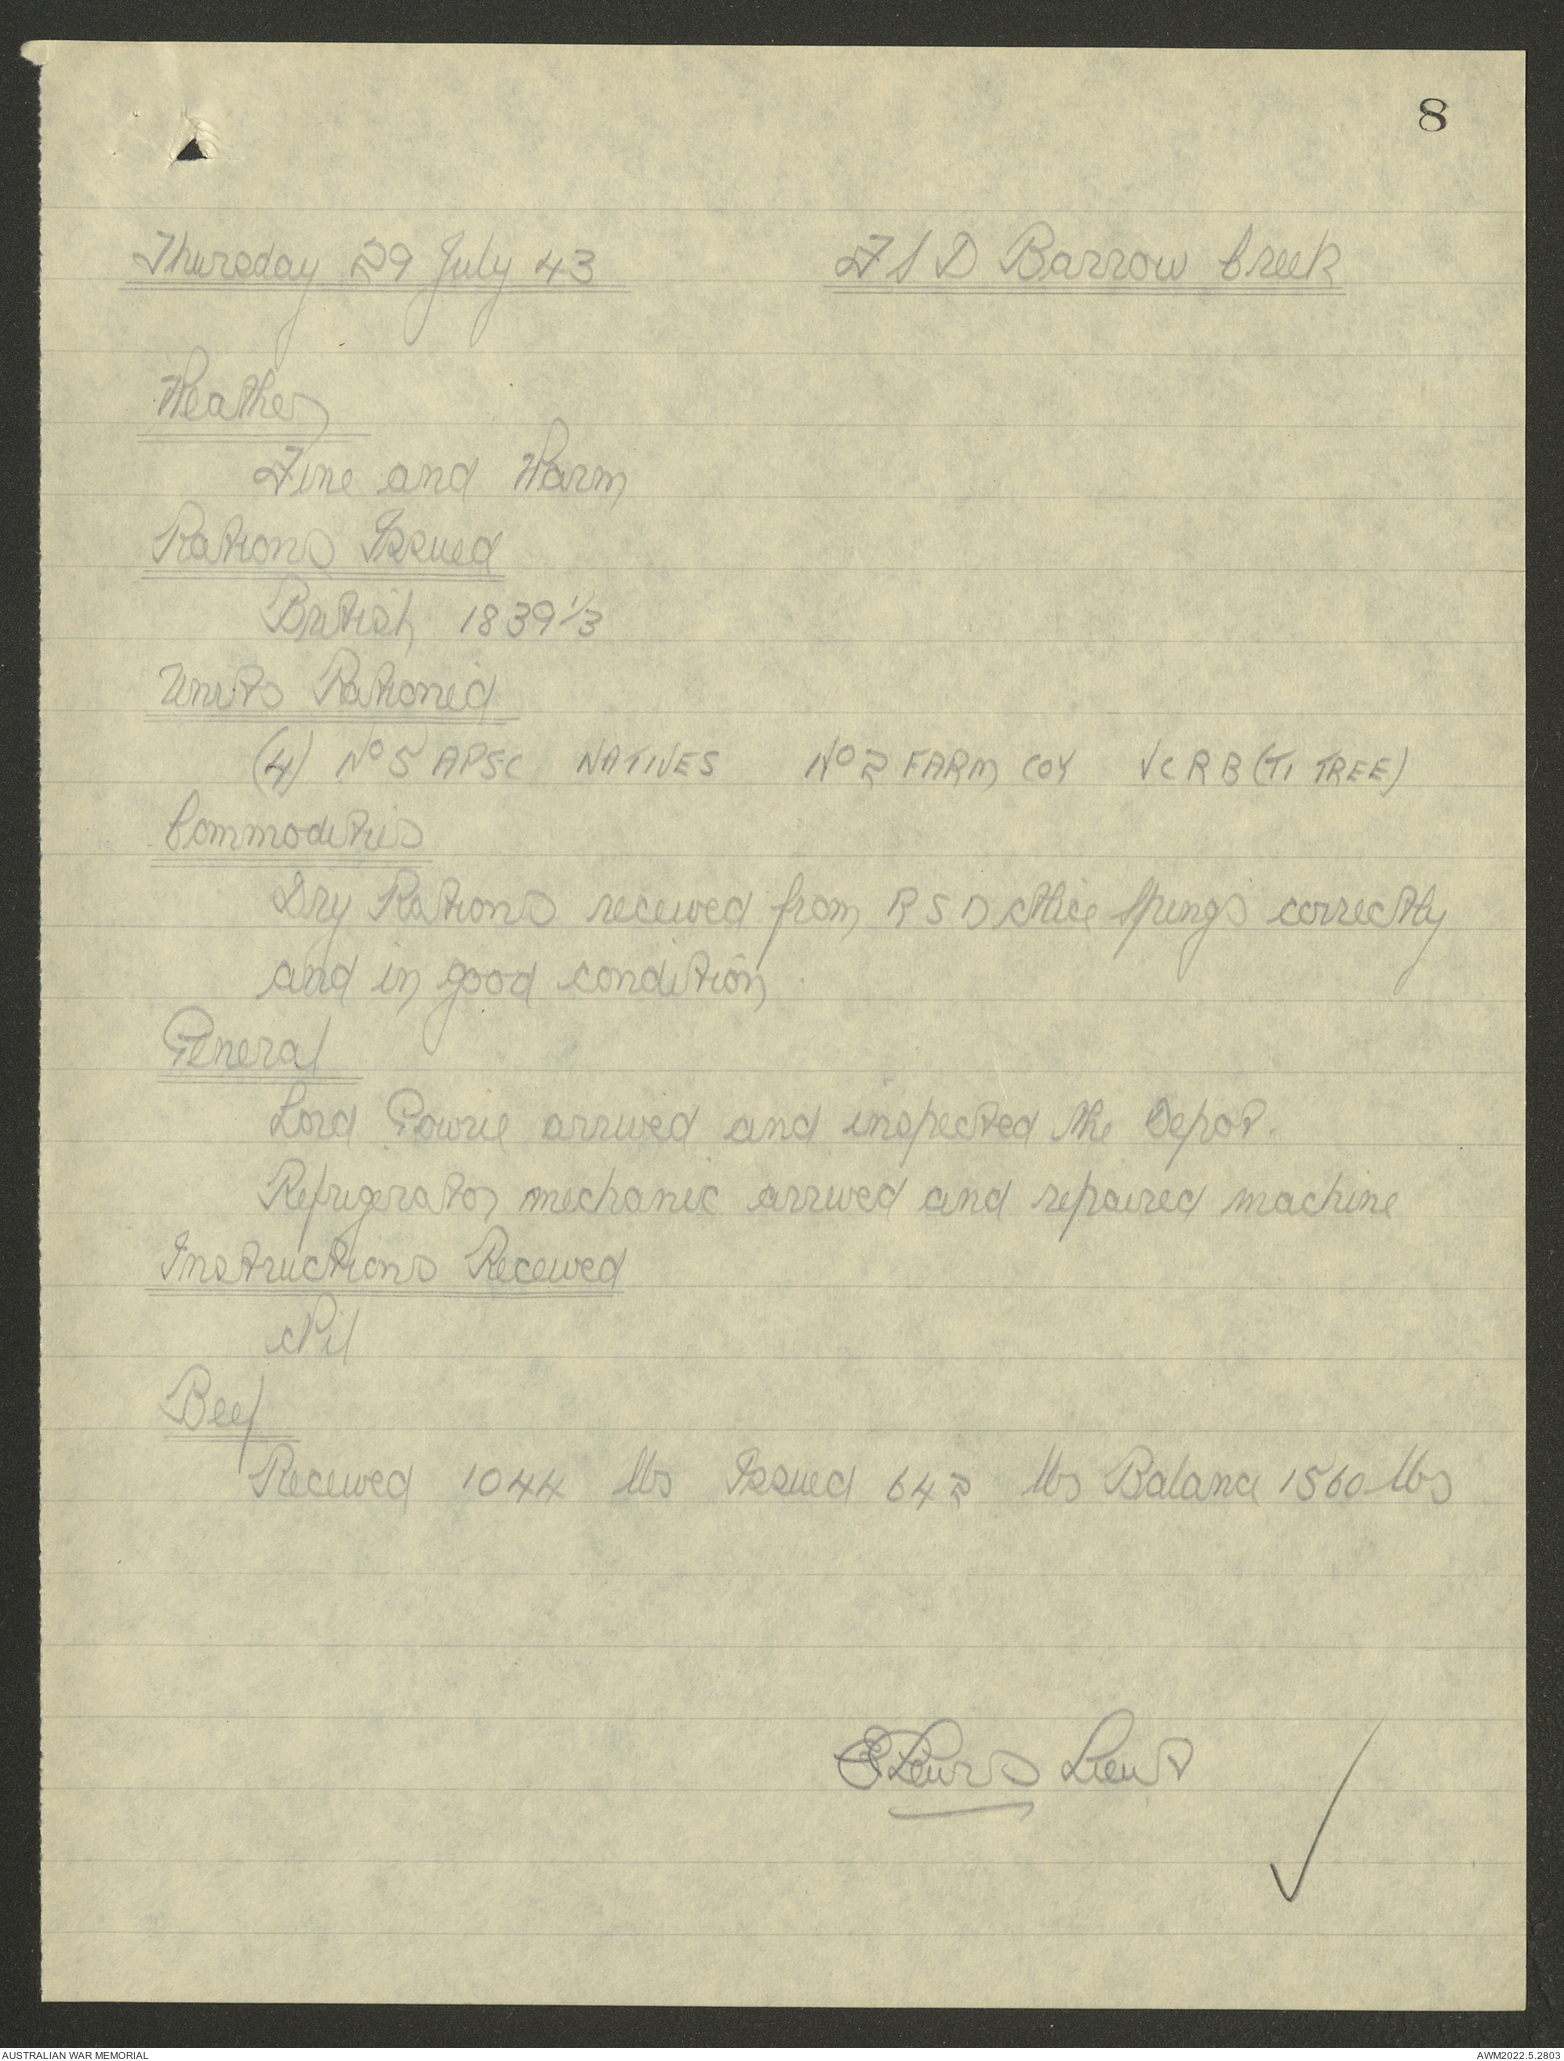 8
Thursday 29 July 43 FSD Barrow Creek
Weather
Fine and Warm
Rations Issued
British 1839 1/3
Units Rationed
(4) No 5 APSC NATIVES No 2 FARM COY VCRB (TI TREE)
Commodities
Dry Rations received from RSD Alice Springs correctly
and in good condition.
General
Lord Gowrie arrived and inspected the Depot.
Refrigerator mechanic arrived and repaired machine
Instructions Received
Nil
Beef
Received 1044 lbs Issued 642 lbs Balance 1560 lbs
Lewis Lieut
AUSTRALIAN WAR MEMORIAL AWM2022.5.2803